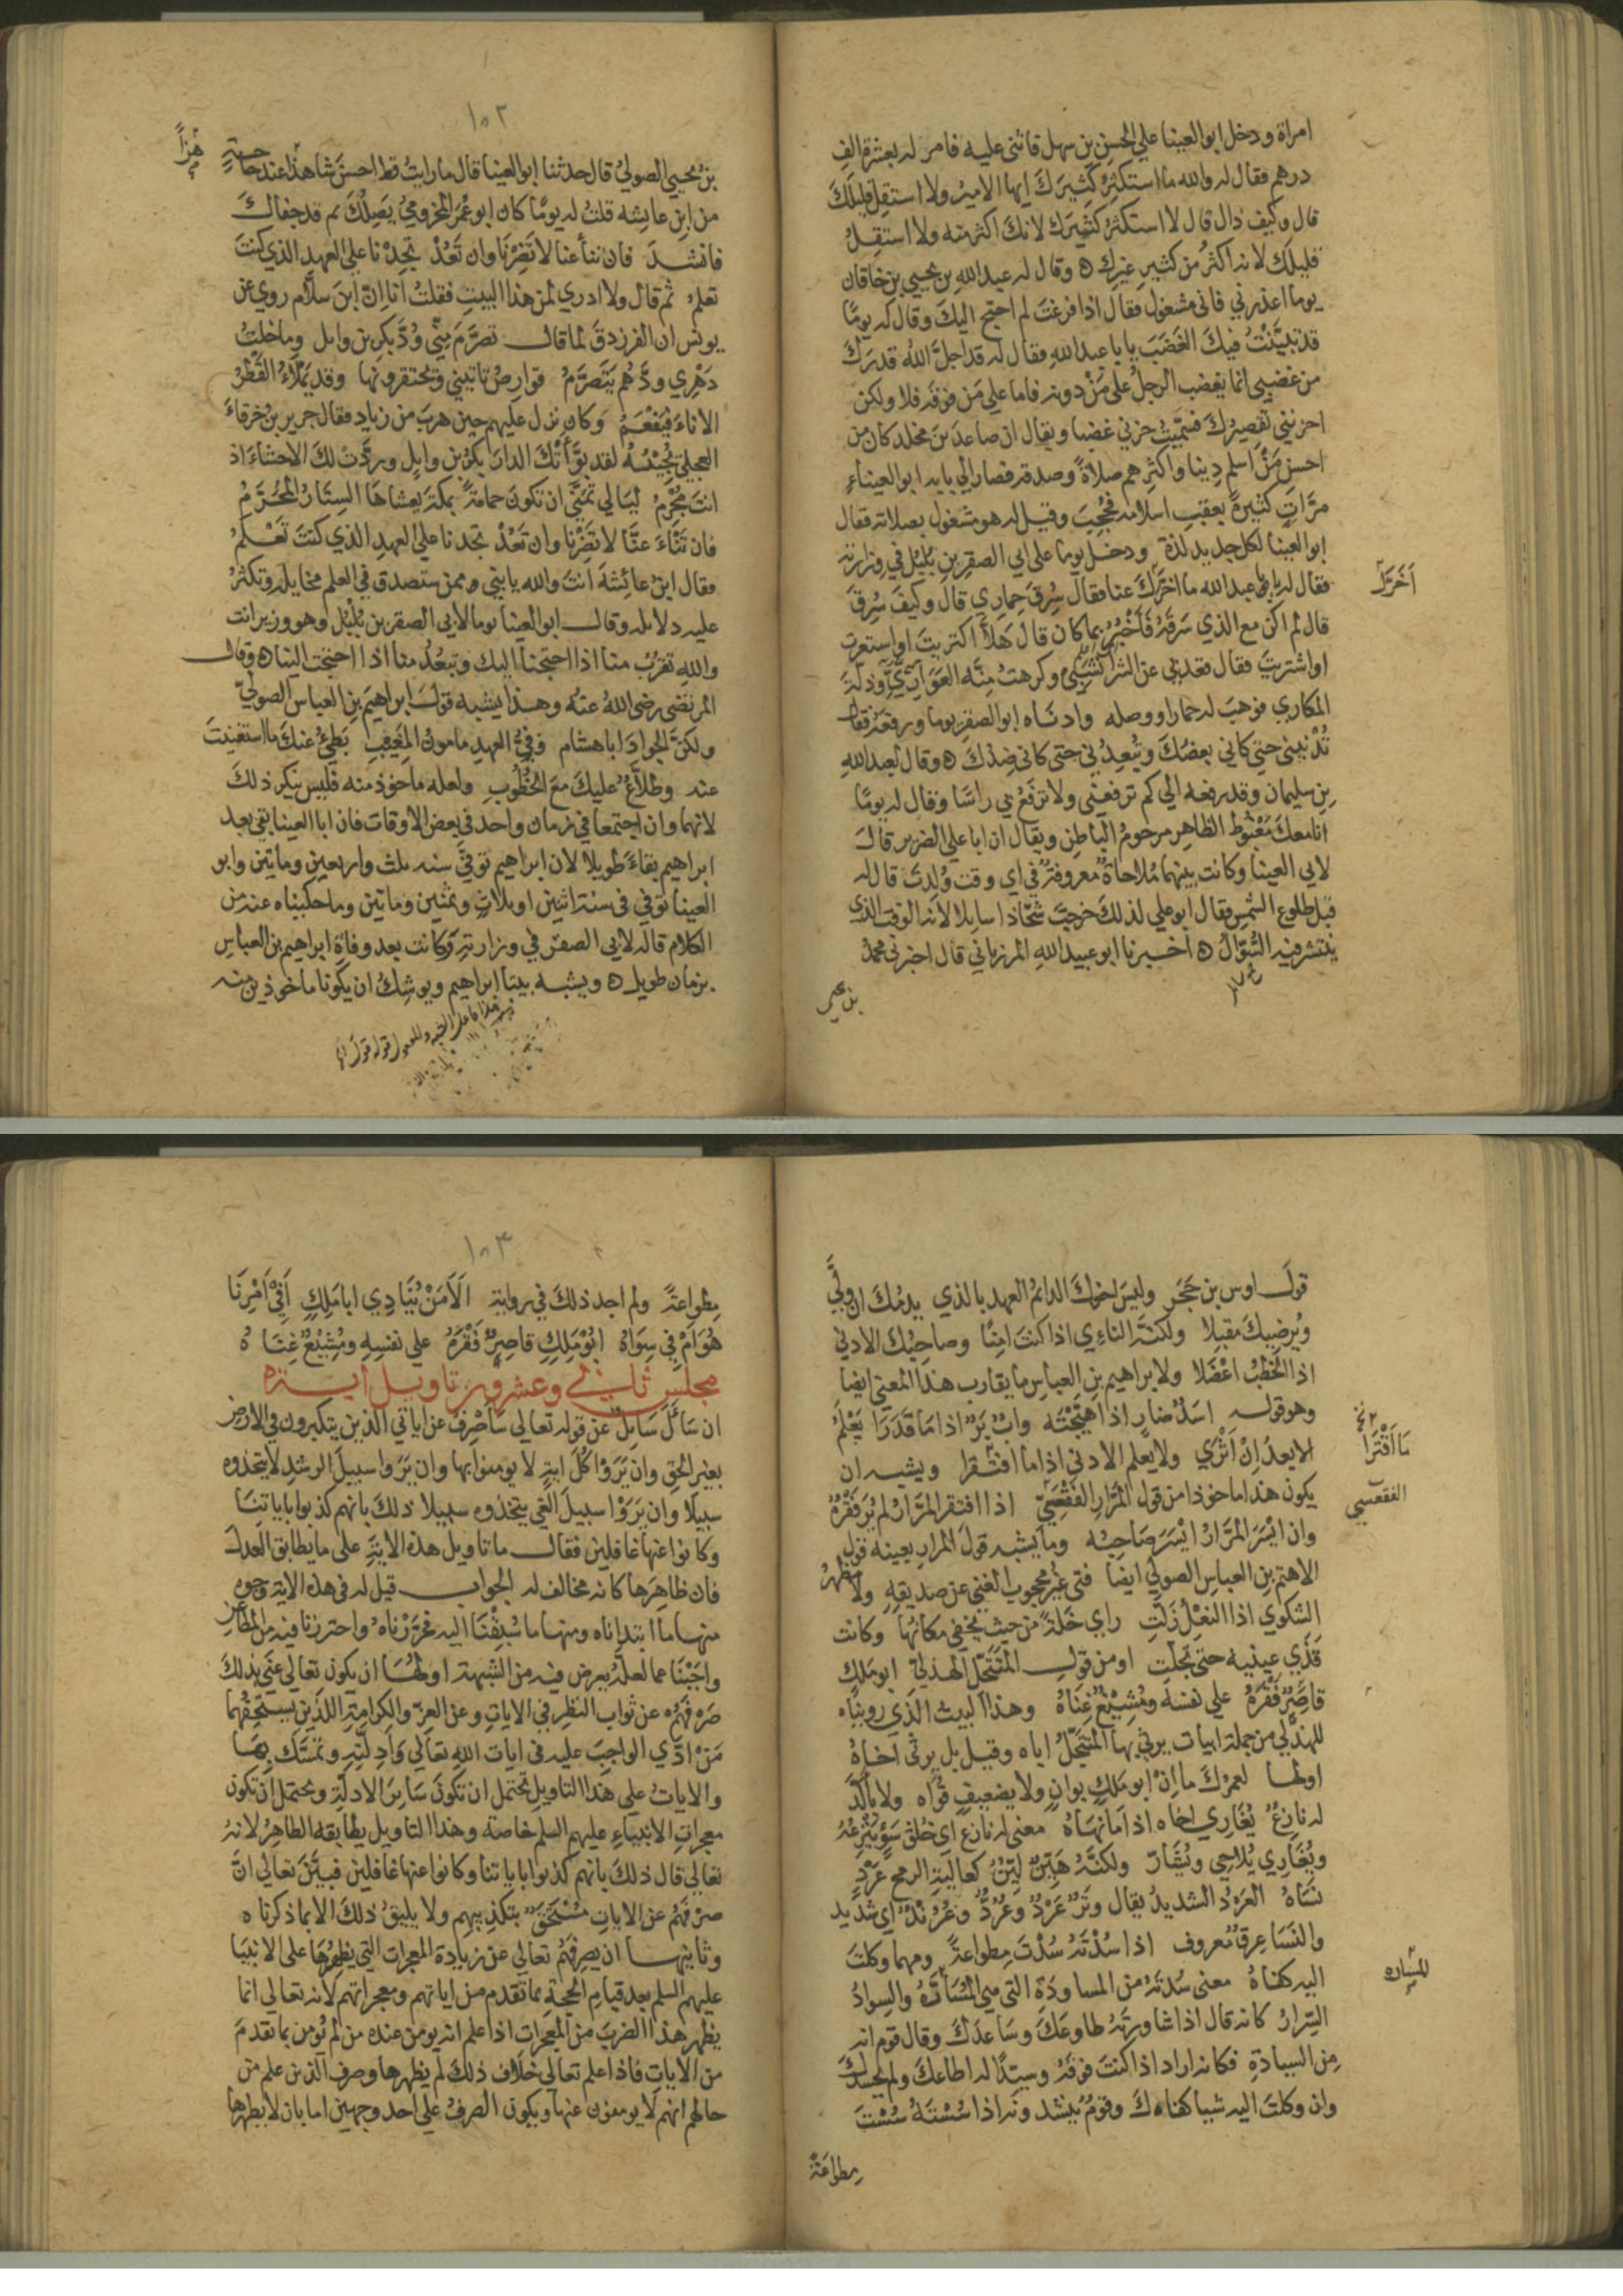 امراة ودخل ابو العينا علي الحسن بن سهل فاثنى عليه فامر له بعشرة الف
درهم فقال له والله ما استكثر كثيرك ايها الامير ولا استقل قليلك
قال وكيف ذال قال لا استكثر كثيرك لانك اكثر منه ولا استقل
قليلك لانه اكثر من كثير غيرك ه وقال له عبد الله بن يحيي بن خاقان
يوما اعذرني فاني مشغول فقال اذا فرغت لم احتج اليك وقال له يوما
قد تبينت فيك الغضب يا با عبد الله فقال له قد اجل الله قدرك
من غضبي انما يغضب الرجل على من دونه فاما علي من فوقه فلا ولكن
احزنني تقصيرك فسميت حزني غضبا ويقال ان صاعد بن مخلد كان من
احسن من اسلم دينا واكثرهم صلاة وصدقة فصار الي بابه ابو العيناء
مرات كثيرة بعقب اسلامه فحجب وقيل له هو مشغول بصلاته فقال
ابو العينا لكل جديد لذة ودخل يوما على ابي الصقر بن بلبل في وزارته
فقال له يا با عبد الله ما اخرك عنا فقال سرق حماري قال وكيف سرق
اخرك
قال لم اكن مع الذي سرقه فاخبر بما كان قال هلا اكتريت او استعرت
او اشتريت فقال قعد بي عن الشرا وكرهت منة العواري وذلة
المكاري فوهب له حمارا ووصله وادناه ابو الصقر يوما ورفعه فقال
تدنيني حتي كاني بعضك وتبعدني حتى كاني ضدك ه وقال لعبد الله
بن سليمان وقد رفعه الي كم ترفعني ولا ترفع بي راسا وقال له يوما
انا معك مغبوط الظاهر مرحوم الباطن ويقال ان ابا علي الضرير قال
لابي العينا وكانت بينهما ملاحاة معروفة في اي وقت ولدت قال له
قبل طلوع الشمس فقال ابو علي لذلك خرجت شحاذا سايلا لانه الوقت الذي
ينتشر فيه السوال ه اخبرنا ابو عبيد الله المرزباني قال اخبرني محمد
بن يحيى
١٠٢
بن يحيي الصولي قال حدثنا ابو العينا قال ما رايت قط احسن شاهدا عند حاجة
من ابن عايشه قلت له يوما كان ابو عمر المخزومي يصلك ثم قد جفاك
فانشد فان تنأ عنا لا تضرنا وان تعد تجدنا على العهد الذي كنت
تعلم ثم قال ولا ادري لمن هذا البيت فقلت انا ان ابن سلام روي عن
يونس ان الفرزدق لما قال تصرم مني ود بكر بن وايل وما خلت
دهري ودهم يتصرم قوارص تاتيني وتحتقرونها وقد يملاء القطر
الاناء فيفعم وكان نزل عليهم حين هرب من زياد فقال جرير بن خرقاء
العجلي يجيبه لقد بواتك الدار بكر بن وايل وردت لك الاحشاء اذ
انت مجرم ليالي تمنى ان تكون حمامة بمكة يغشاها الستار المحرم
فان تناء عنا لا تضرنا وان تعد تجدنا علي العهد الذي كنت تعلم
فقال ابن عائشة انت والله يا بني ممن ستصدق في العلم مخايله وتكثر
عليه دلايله وقال ابو العينا يوما لابي الصقر بن بلبل وهو وزير انت
والله تقرب منا اذا احتجنا اليك وتبعد منا اذا احتجت الينا ه وقال
المرتضى رضى الله عنه وهذا يشبه قول ابراهيم بن العباس الصولي
ولكن الجواد ابا هشام وفي العهد مامون المغيب بطئ عنك ما استغنيت
عنه وطلاع عليك مع الخطوب ولعله ماخوذ منه فليس ينكر ذلك
لانهما وان اجتمعا في زمان واحد في بعض الاوقات فان ابا العينا بقي بعد
ابراهيم بقاء طويلا لان ابراهيم توفي سنه ثلث واربعين ومايتين وابو
العينا توفي في سنة اثنين او ثلاث وثمنين ومايتين وما حكيناه عنه من
الكلام قاله لابي الصقر في وزارته وكانت بعد وفاة ابراهيم بن العباس
بزمان طويل ه ويشبه بيتا ابراهيم ويوشك ان يكونا ماخوذين منه
قول اوس بن حجر وليس اخوك الدائم العهد بالذي يذمك ان ولي
ويرضيك مقبلا ولكنه النائ اذا كنت امنا وصاحبك الادني
اذا الخطب اعضلا ولابراهيم بن العباس ما يقارب هذا المعني ايضا
وهو قوله اسد ضار اذا هيجته واب بر اذا ما قدرا يعلم
الابعد ان اثري ولا يعلم الادني اذا ما افتقرا ويشبه ان
ما اقترا
يكون هذا ماخوذا من قول المرار الفقعسي اذا افتقر المرار لم ير فقره
الفقعسي
وان ايسر المرار ايسر صاحبه ومما يشبه قول المرار بعينه قول
الاهتم بن العباس الصولي ايضا فتى غير محجوب الغني عن صديقه ولا مظهر
الشكوي اذا النعل زلت راي خلة من حيث يخفي مكانها وكانت
قذي عينيه حتى تجلت او من قول المتنخل الهذلي ابو ملك
قاصر فقره علي نفسه ومشيع غناه وهذا البيت الذي رويناه
للهذلي من جملة ابيات يرثي بها المتنخل اباه وقيل بل يرثى اخاه
اولها لعمرك ما ان ابو ملك بوان ولا بضعيف قواه ولا بالد
له نازع يغاري اخاه اذا ما نهاه معنى له نازع اي خلق سوء ينزعه
ويغاري يلاحي ويشار ولكنه هين لين كعالية الرمح عرد
نساه العرد الشديد يقال وتر عرد وعرد وعرند اي شديد
والنسا عرق معروف اذا سدته سدت مطواعة ومهما وكلت
اليه كفاه معنى سدته من المساودة التي هي المسارة والسواد
للمساره
السرار كانه قال اذا شاورته طاوعك وساعدك وقال قوم انه
من السيادة فكانه اراد اذا كنت فوقه وسيدا له اطاعك ولم يحسدك
وان وكلت اليه شيا كفاك وقوم ينشدونه اذا سسته سست
مطواعة
١٠٣
مطواعة ولم اجد ذلك في رواية الا من ينادي ابا ملك افي امرنا
هو ام في سواه ابو ملك قاصر فقره علي نفسه ومشيع غناه
مجلس ثاني وعشرون تاويل اية
ان سال سايل عن قوله تعالى ساصرف عن اياتي الذين يتكبرون في الارض
بغير الحق وان يروا كل اية لا يومنوا بها وان يروا سبيل الرشد لا يتخذوه
سبيلا وان يروا سبيل الغي يتخذوه سبيلا ذلك بانهم كذبوا باياتنا
وكانوا عنها غافلين فقال ما تاويل هذه الاية على ما يطابق العدل
فان ظاهرها كانه مخالف له الجواب قيل له في هذه الاية وجوه
منها ما ابتداناه ومنها ما سبقنا اليه فحررناه واحترزنا فيه من المطاعن
واجبنا عما لعله يعرض فيه من الشبهة اولها ان يكون تعالي عني بذلك
صرفهم عن ثواب النظر في الايات وعن العز والكرامة اللذين يستحقهما
من ادي الواجب عليه في ايات الله تعالي وادلته وتمسك بها
والايات علي هذا التاويل تحتمل ان تكون ساير الادلة ويحتمل ان تكون
معجزات الانبياء عليهم السلم خاصة وهذا التاويل يطابقه الظاهر لانه
تعالي قال ذلك بانهم كذبوا باياتنا وكانوا عنها غافلين فبين تعالي ان
صرفهم عن الايات مستحق بتكذيبهم ولا يليق ذلك الا بما ذكرناه
وثانيها ان يصرفهم تعالي عن زيادة المعجزات التي يظهرها على الانبيا
عليهم السلم بعد قيام الحجة بما تقدم من اياتهم ومعجزاتهم لانه تعالي انما
يظهر هذا الضرب من المعجزات اذا علم انه يومن عنده من لم يومن بما تقدم
من الايات فاذا علم تعالي خلاف ذلك لم يظهرها وصرف الذين علم من
حالهم انهم لا يومنون عنها ويكون الصرف علي احد وجهين اما بان لا يظهرها